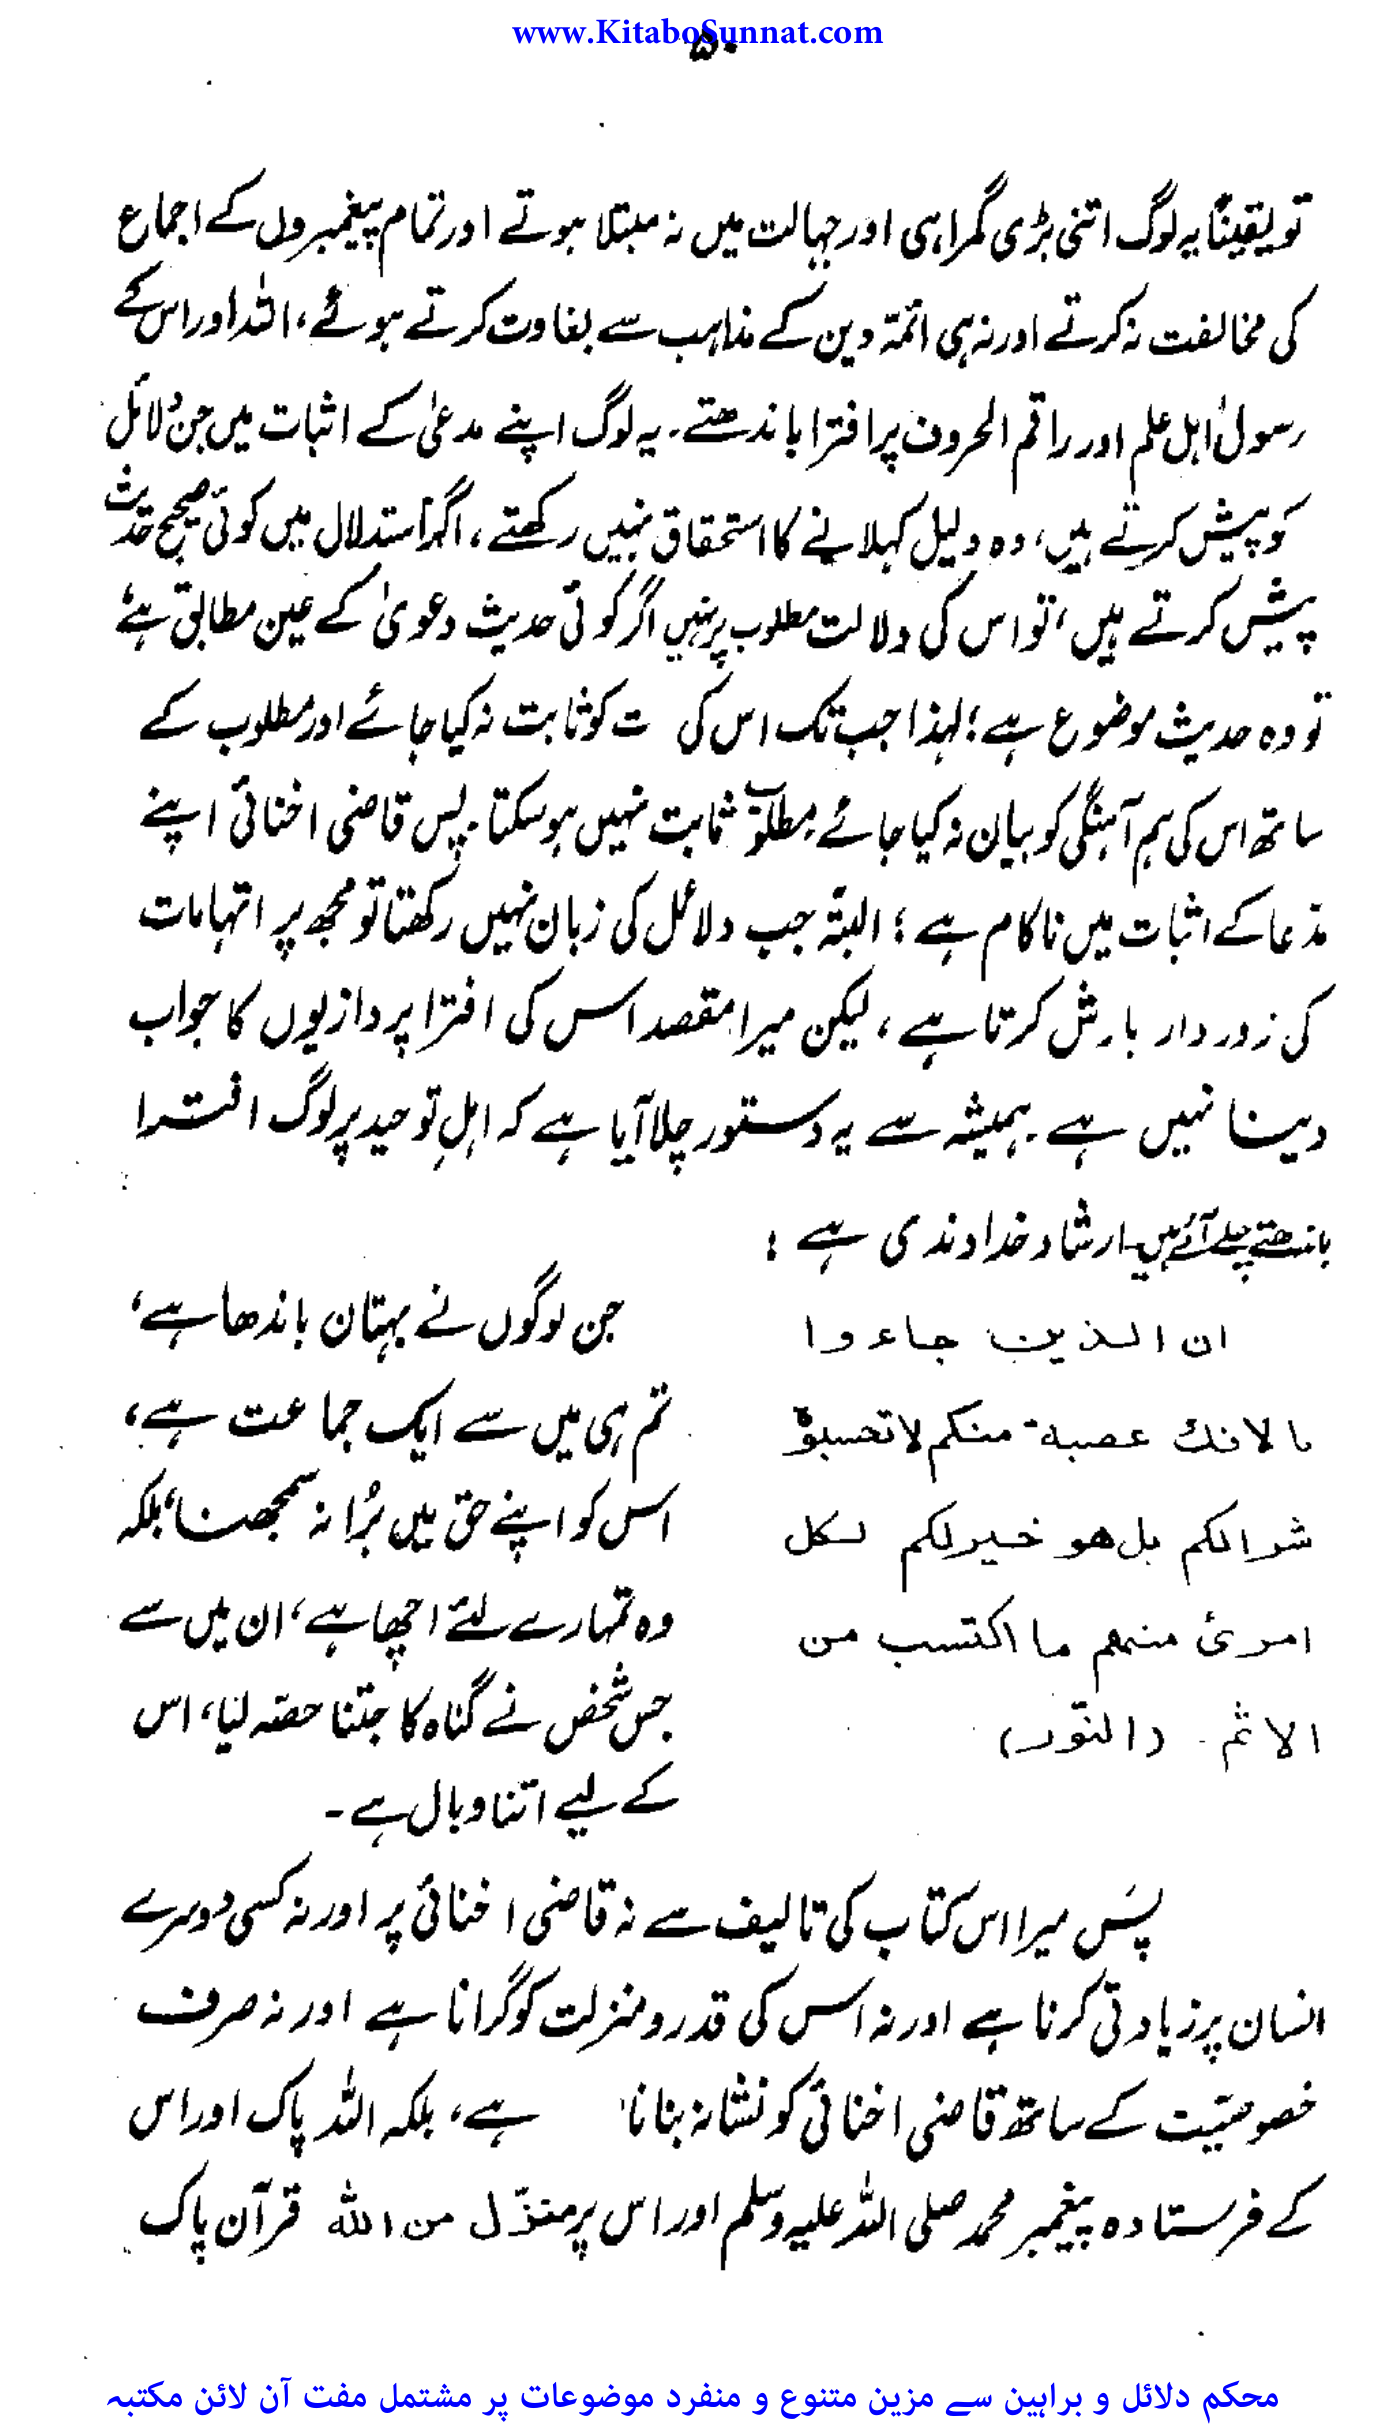 www.KitaboSunnat.com
۵۰
تو یقیناً یہ لوگ اتنی بڑی گمراہی اور جہالت میں نہ مبتلا ہوتے اور تمام پیغمبروں کے اجماع
کی مخالفت نہ کرتے اور نہ ہی ائمہ دین کے مذاہب سے بغاوت کرتے ہوئے، اللہ اور اس کے
رسول، اہل علم اور راقم الحروف پر افترا باندھتے۔ یہ لوگ اپنے مدعیٰ کے اثبات میں جن دلائل
کو پیش کرتے ہیں، وہ دلیل کہلانے کا استحقاق نہیں رکھتے، اگر استدلال میں کوئی صحیح حدیث
پیش کرتے ہیں، تو اس کی دلالت مطلوب پر نہیں اگر کوئی حدیث دعویٰ کے عین مطابق ہے
تو وہ حدیث موضوع ہے؛ لہذا جب تک اس کی ت کو ثابت نہ کیا جائے اور مطلوب کے
ساتھ اس کی ہم آہنگی کو بیان نہ کیا جائے مطلوب ثابت نہیں ہو سکتا۔ پس قاضی اخنائی اپنے
مدعا کے اثبات میں ناکام ہے؛ البتہ جب دلائل کی زبان نہیں رکھتا تو مجھ پر اتہامات
کی زور دار بارش کرتا ہے، لیکن میرا مقصد اس کی افترا پردازیوں کا جواب
دینا نہیں ہے۔ ہمیشہ سے یہ دستور چلا آیا ہے کہ اہلِ توحید پر لوگ افترا
باندھتے چلے آئے ہیں۔ ارشاد خداوندی ہے :
ان الذین جاءوا
بالافک عصبة منکم لا تحسبوہ
شرا لکم بل ھو خیر لکم لکل
امرئ منھم ما اکتسب من
الاثم۔ (النّور)
جن لوگوں نے بہتان باندھا ہے،
تم ہی میں سے ایک جماعت ہے،
اس کو اپنے حق میں بُرا نہ سمجھنا، بلکہ
وہ تمہارے لئے اچھا ہے، ان میں سے
جس شخص نے گناہ کا جتنا حصّہ لیا، اس
کے لیے اتنا وبال ہے۔
پس میرا اس کتاب کی تالیف سے نہ قاضی اخنائی پر اور نہ کسی دوسرے
انسان پر زیادتی کرنا ہے اور نہ اس کی قدر و منزلت کو گرانا ہے اور نہ صرف
خصوصیّت کے ساتھ قاضی اخنائی کو نشانہ بنانا ہے، بلکہ اللہ پاک اور اس
کے فرستادہ پیغمبر محمد صلی اللہ علیہ وسلم اور اس پر منزّل من اللہ قرآن پاک
محکم دلائل و براہین سے مزین متنوع و منفرد موضوعات پر مشتمل مفت آن لائن مکتبہ